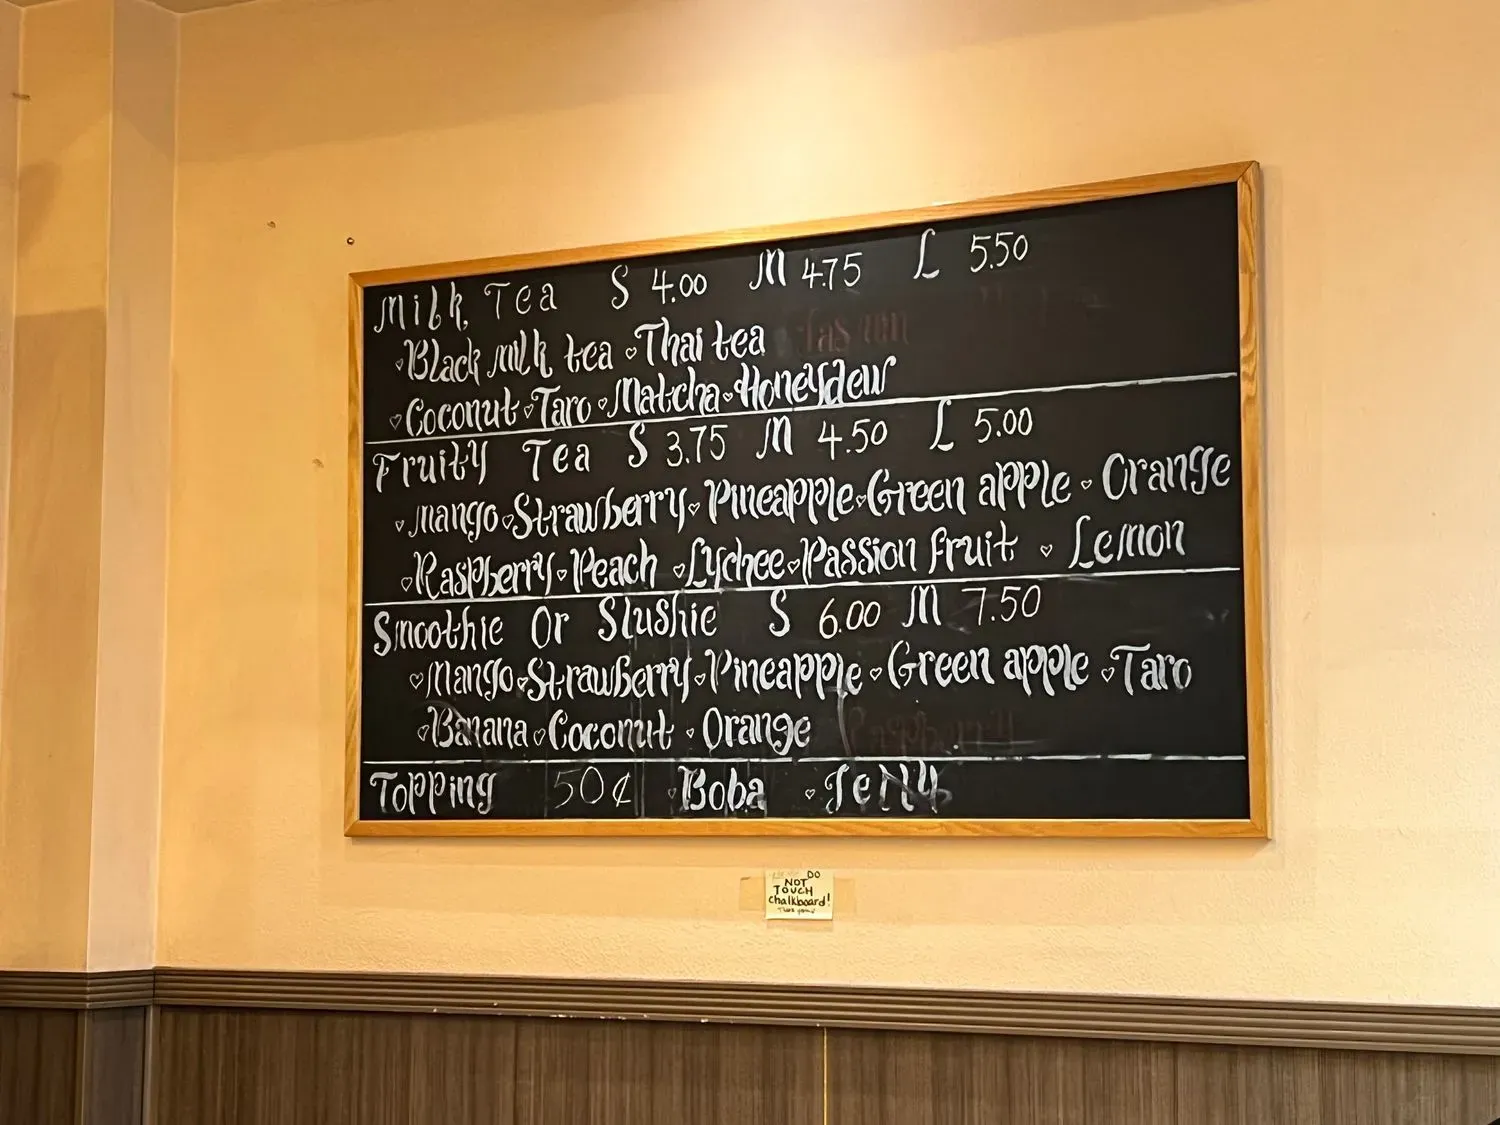 Milk Tea S 4.00 M 4.75 L 5.50
♡Black milk tea ♡Thai tea
♡Coconut ♡Taro ♡Matcha ♡Honeydew
Fruity Tea S 3.75 M 4.50 L 5.00
♡Mango ♡Strawberry ♡Pineapple ♡Green apple ♡Orange
♡Raspberry ♡Peach ♡Lychee ♡Passion fruit ♡Lemon
Smoothie Or Slushie S 6.00 M 7.50
♡Mango ♡Strawberry ♡Pineapple ♡Green apple ♡Taro
♡Banana ♡Coconut ♡Orange Raspberry
Topping 50¢ ♡Boba ♡Jelly
DO
NOT
TOUCH
chalkboard!